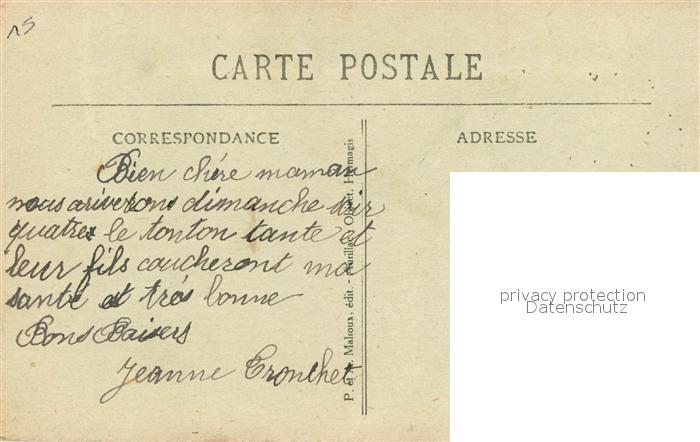 CARTE POSTALE
CORRESPONDANCE
ADRESSE
Bien chére maman
nous ariverons dimanche soir
quatres le tonton tante et
leur fils coucheront ma
santé et trés bonne
Bons Baisers
Jeanne
P. et M. Malroux, édit. - Aurillac. Object. Hermagis
privacy protection
Datenschutz